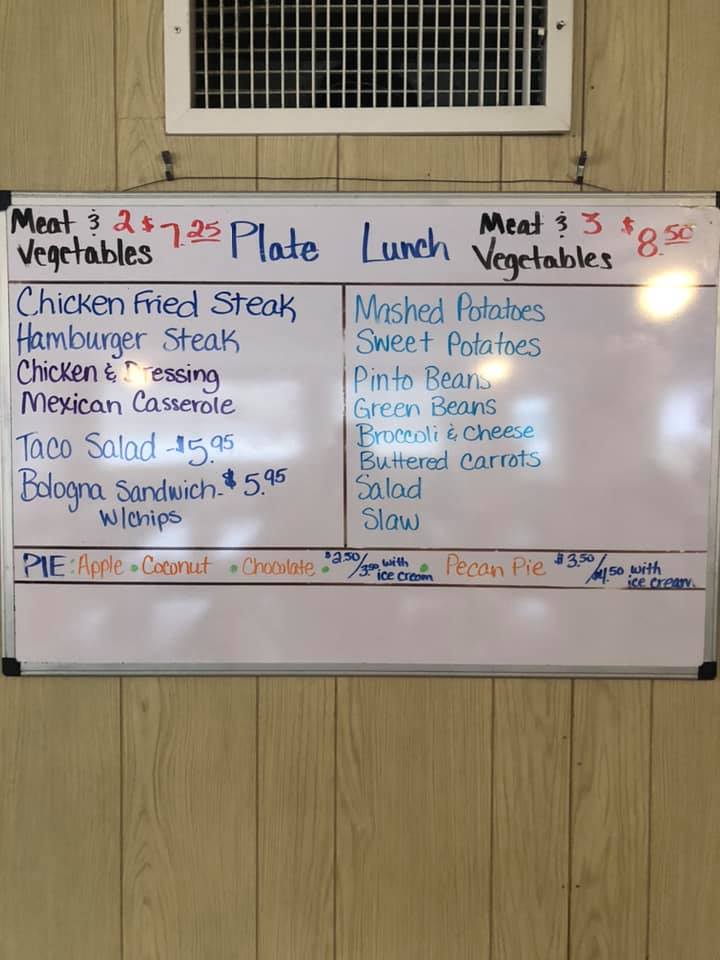 Meat & 2 $7.25
Vegetables
Plate Lunch
Meat & 3 $8.50
Vegetables
Chicken Fried Steak
Hamburger Steak
Chicken & Dressing
Mexican Casserole
Taco Salad - $5.95
Bologna Sandwich - $5.95
W/chips
Mashed Potatoes
Sweet Potatoes
Pinto Beans
Green Beans
Broccoli & Cheese
Buttered Carrots
Salad
Slaw
PIE: Apple • Coconut • Chocolate • $2.50/3.50 with ice cream • Pecan Pie $3.50/$4.50 with ice cream.